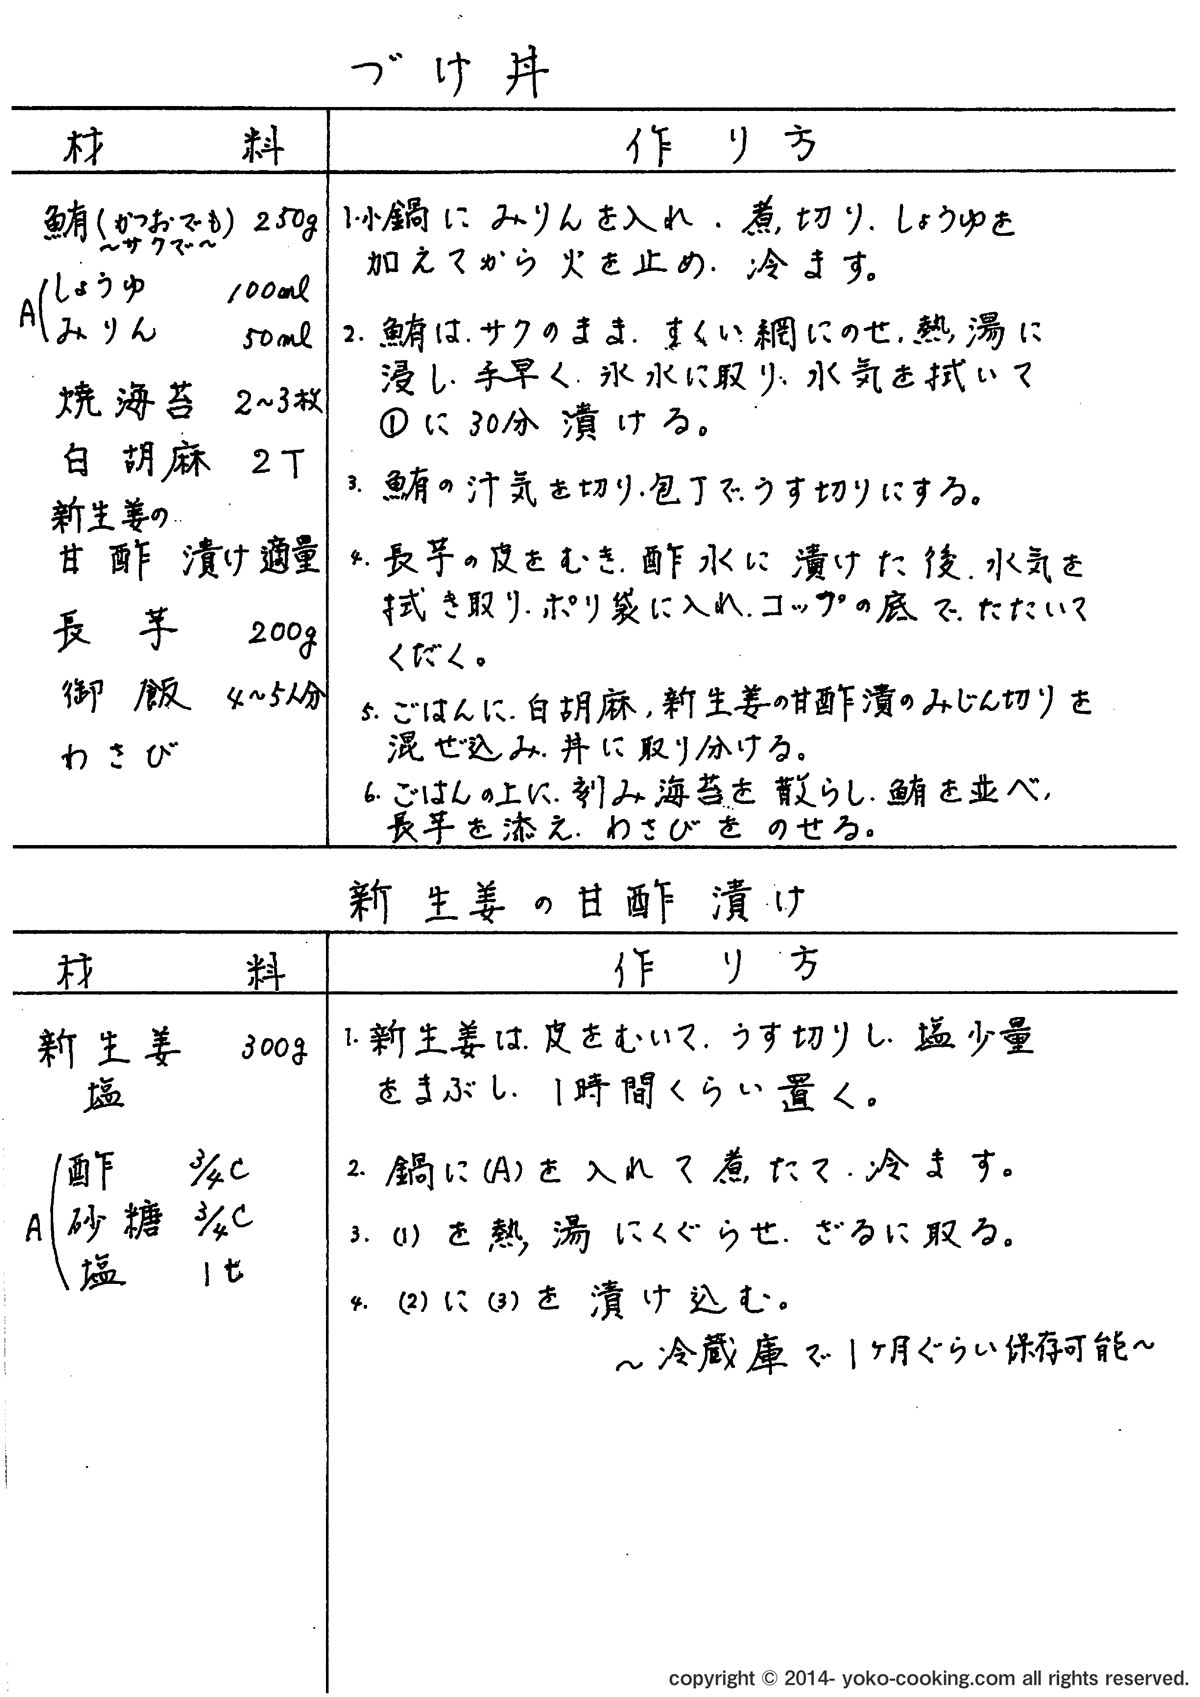 づけ丼
材料
作り方
鮪(かつおでも) 250g
〜サクで〜
A
しょうゆ 100ml
みりん 50ml
焼海苔 2〜3枚
白胡麻 2T
新生姜の
甘酢漬け適量
長芋 200g
御飯 4〜5人分
わさび
1.小鍋にみりんを入れ、煮切り、しょうゆを
加えてから火を止め、冷ます。
2. 鮪は、サクのまま、すくい網にのせ、熱湯に
浸し、手早く、氷水に取り、水気を拭いて
①に30分漬ける。
3. 鮪の汁気を切り、包丁で、うす切りにする。
4. 長芋の皮をむき、酢水に漬けた後、水気を
拭き取り、ポリ袋に入れ、コップの底で、たたいて
くだく。
5. ごはんに、白胡麻、新生姜の甘酢漬のみじん切りを
混ぜ込み、丼に取り分ける。
6. ごはんの上に、刻み海苔を散らし、鮪を並べ、
長芋を添え、わさびをのせる。
新生姜の甘酢漬け
材料
作り方
新生姜 300g
塩
A
酢 3/4C
砂糖 3/4C
塩 1t
1. 新生姜は、皮をむいて、うす切りし、塩少量
をまぶし、1時間くらい置く。
2. 鍋に(A)を入れて煮たて、冷ます。
3. (1)を熱湯にくぐらせ、ざるに取る。
4. (2)に(3)を漬け込む。
〜冷蔵庫で1ヶ月ぐらい保存可能〜
copyright © 2014- yoko-cooking.com all rights reserved.